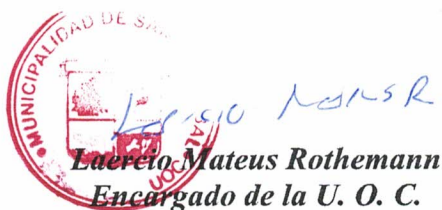 MUNICIPALIDAD DE
UOC
Laercio Mateus Rothemann
Encargado de la U. O. C.